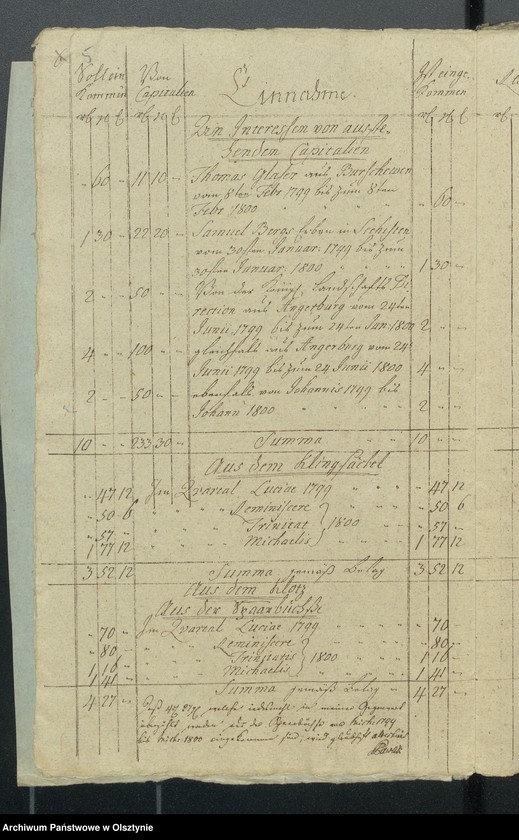 Soll ein Von Einnahme. Ist einge
kommen Capitalien kommen
An Interessen von ausste-
henden Capitalien
" 60 " 11 10 " Thomas Glaser aus
vom 8ten Febr 1799 bis zum 8ten
Febr 1800 " 60 "
1 30 " 22 20 " Samuel Bergs Erben in
vom 30sten Januar. 1799 bis zum
30sten Januar. 1800 1 30 "
2 " " 50 " " Von der Königl. Landschafts Di
rection aus Angerburg vom 24ten
Junii 1799 bis zum 24ten Jun: 1800 2 " "
4 " " 100 " " gleichfalls aus Angerburg vom 24
Junii 1799 bis zum 24 Junii 1800 4 " "
2 " " 50 " " ebenfalls von Johannis 1799 bis
Johann 1800 2 " "
10 " " 233 30 " Summa 10 " "
Aus dem Klingsäckel
" 47 12 Im Quartal Luciae 1799 " 47 12
" 50 6 " " Reminiscere " 50 6
" 57 " " " Trinitat 1800 " 57 "
1 77 12 " " Michaelis 1 77 12
3 52 12 Summa gemäß Belag 3 52 12
Aus dem Klotz
Aus der Sparbüchße
" 70 " Im Quartal Luciae 1799 " 70 "
" 80 " " " Reminiscere " 80 "
1 16 " " " Trinitatis 1800 1 16 "
1 41 " " " Michaelis 1 41 "
4 27 " Summa gemäß Belag 4 27 "
welche in meiner Gegenwart
worden aus der
bis 1800 eingekommen sind, wird
Archiwum Państwowe w Olsztynie